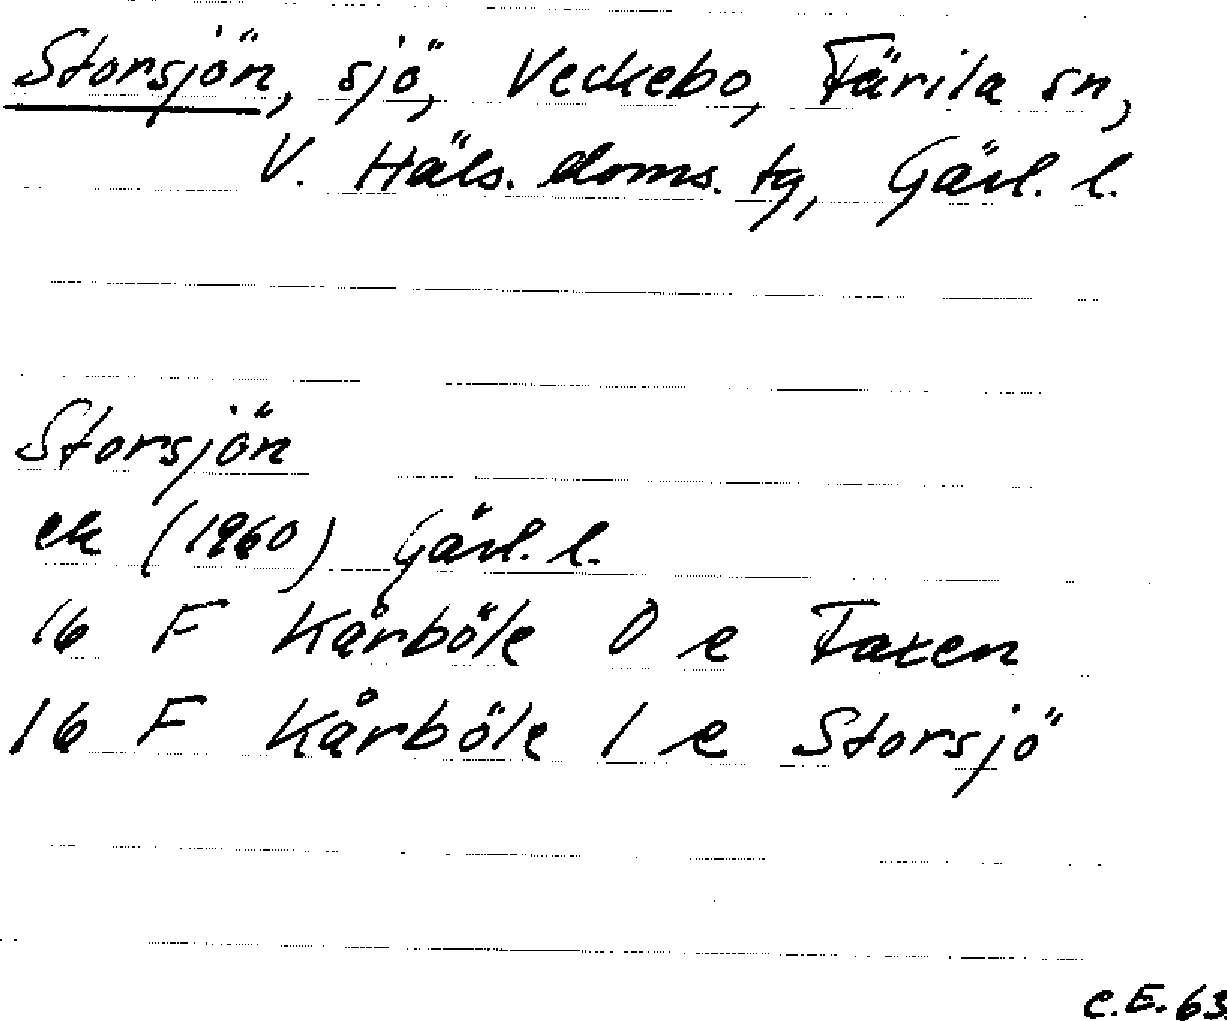 Storsjön, sjö, Veckebo, Färila sn,
V. Häls. doms. tg, Gävl. l.
Storsjön
ek (1960) Gävl. l.
16 F Kårböle 0 e Faxen
16 F Kårböle 1 e Storsjö
C.E. 63.